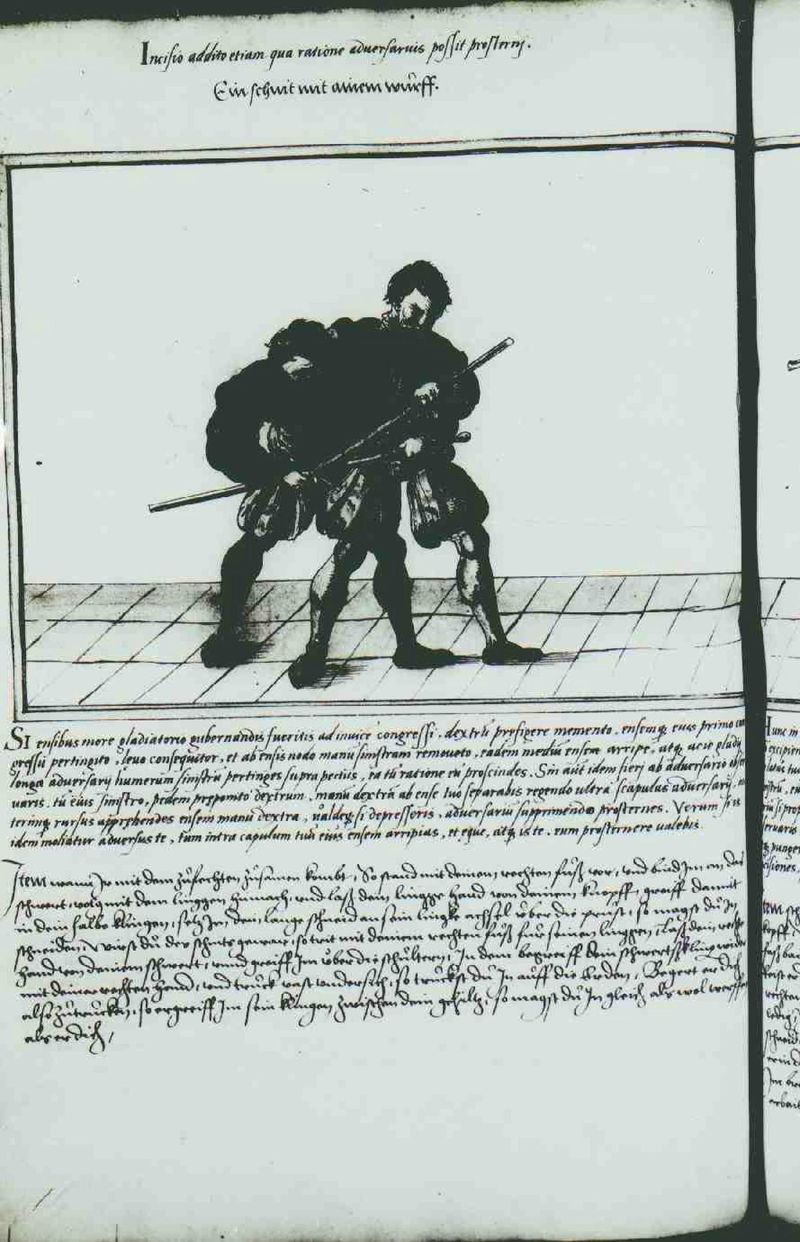 Incisio addito etiam qua ratione adversarius possit prosterni.
Ein schnit mit ainem wurff.
SI ensibus more gladiatorio gubernandis fueritis ad invicē congressi, dextrū prefigere memento, ensemq; eius primo
gressu pertingito, levo consequitor, et ab ensis nodo manū sinistram removeto, eadem mediū ensem arripe, atq; acie gladij
longa adversarij humerum sinistrū pertinges supra pectus, ea tū ratione eū proscindes. Sin aūt idem fieri ab adversario
varis, tū eius sinistro, pedem preponito dextrum, manū dextrā ab ense tuo separabis regendo ultra scapulas adversarij,
terimq; rursus apprehendes ensem manū dextra, valdeq; si depresseris, adversariū supprimendo prosternes. Verum si is
idem moliatur adversus te, tum intra capulum tuū eius ensem arripias, et eque, atq; is te, eum prosternere valebis.
Item wann Ir mit dem zufechten zusamen kombt, So stand mit deinem rechten fuß vor, und bind Im an das
schwert, volg mit dem linggen hinnach, und laß dein lingge hand von deinem knopff, greiff damit
in dein halbe klingen, setz Im, dein lange schneid an sein lingke achsel über die prust, so magst du In
schneiden, Wirst du des schnits gewar, so trit mit deinem rechten fuß für seinen linggen, laß dein recht
hand von deinem schwert, unnd greiff Im über die schultern, In dem begreiff dein schwerts kling wider
mit deiner rechten hand, und truck vast undersich, so truckst du In auff die Erden, Begert er dich
also zutrucken, so ergreiff Im sein klingen zwischen dein gehiltz, so magst du In gleich als wol werffen
als er dich,